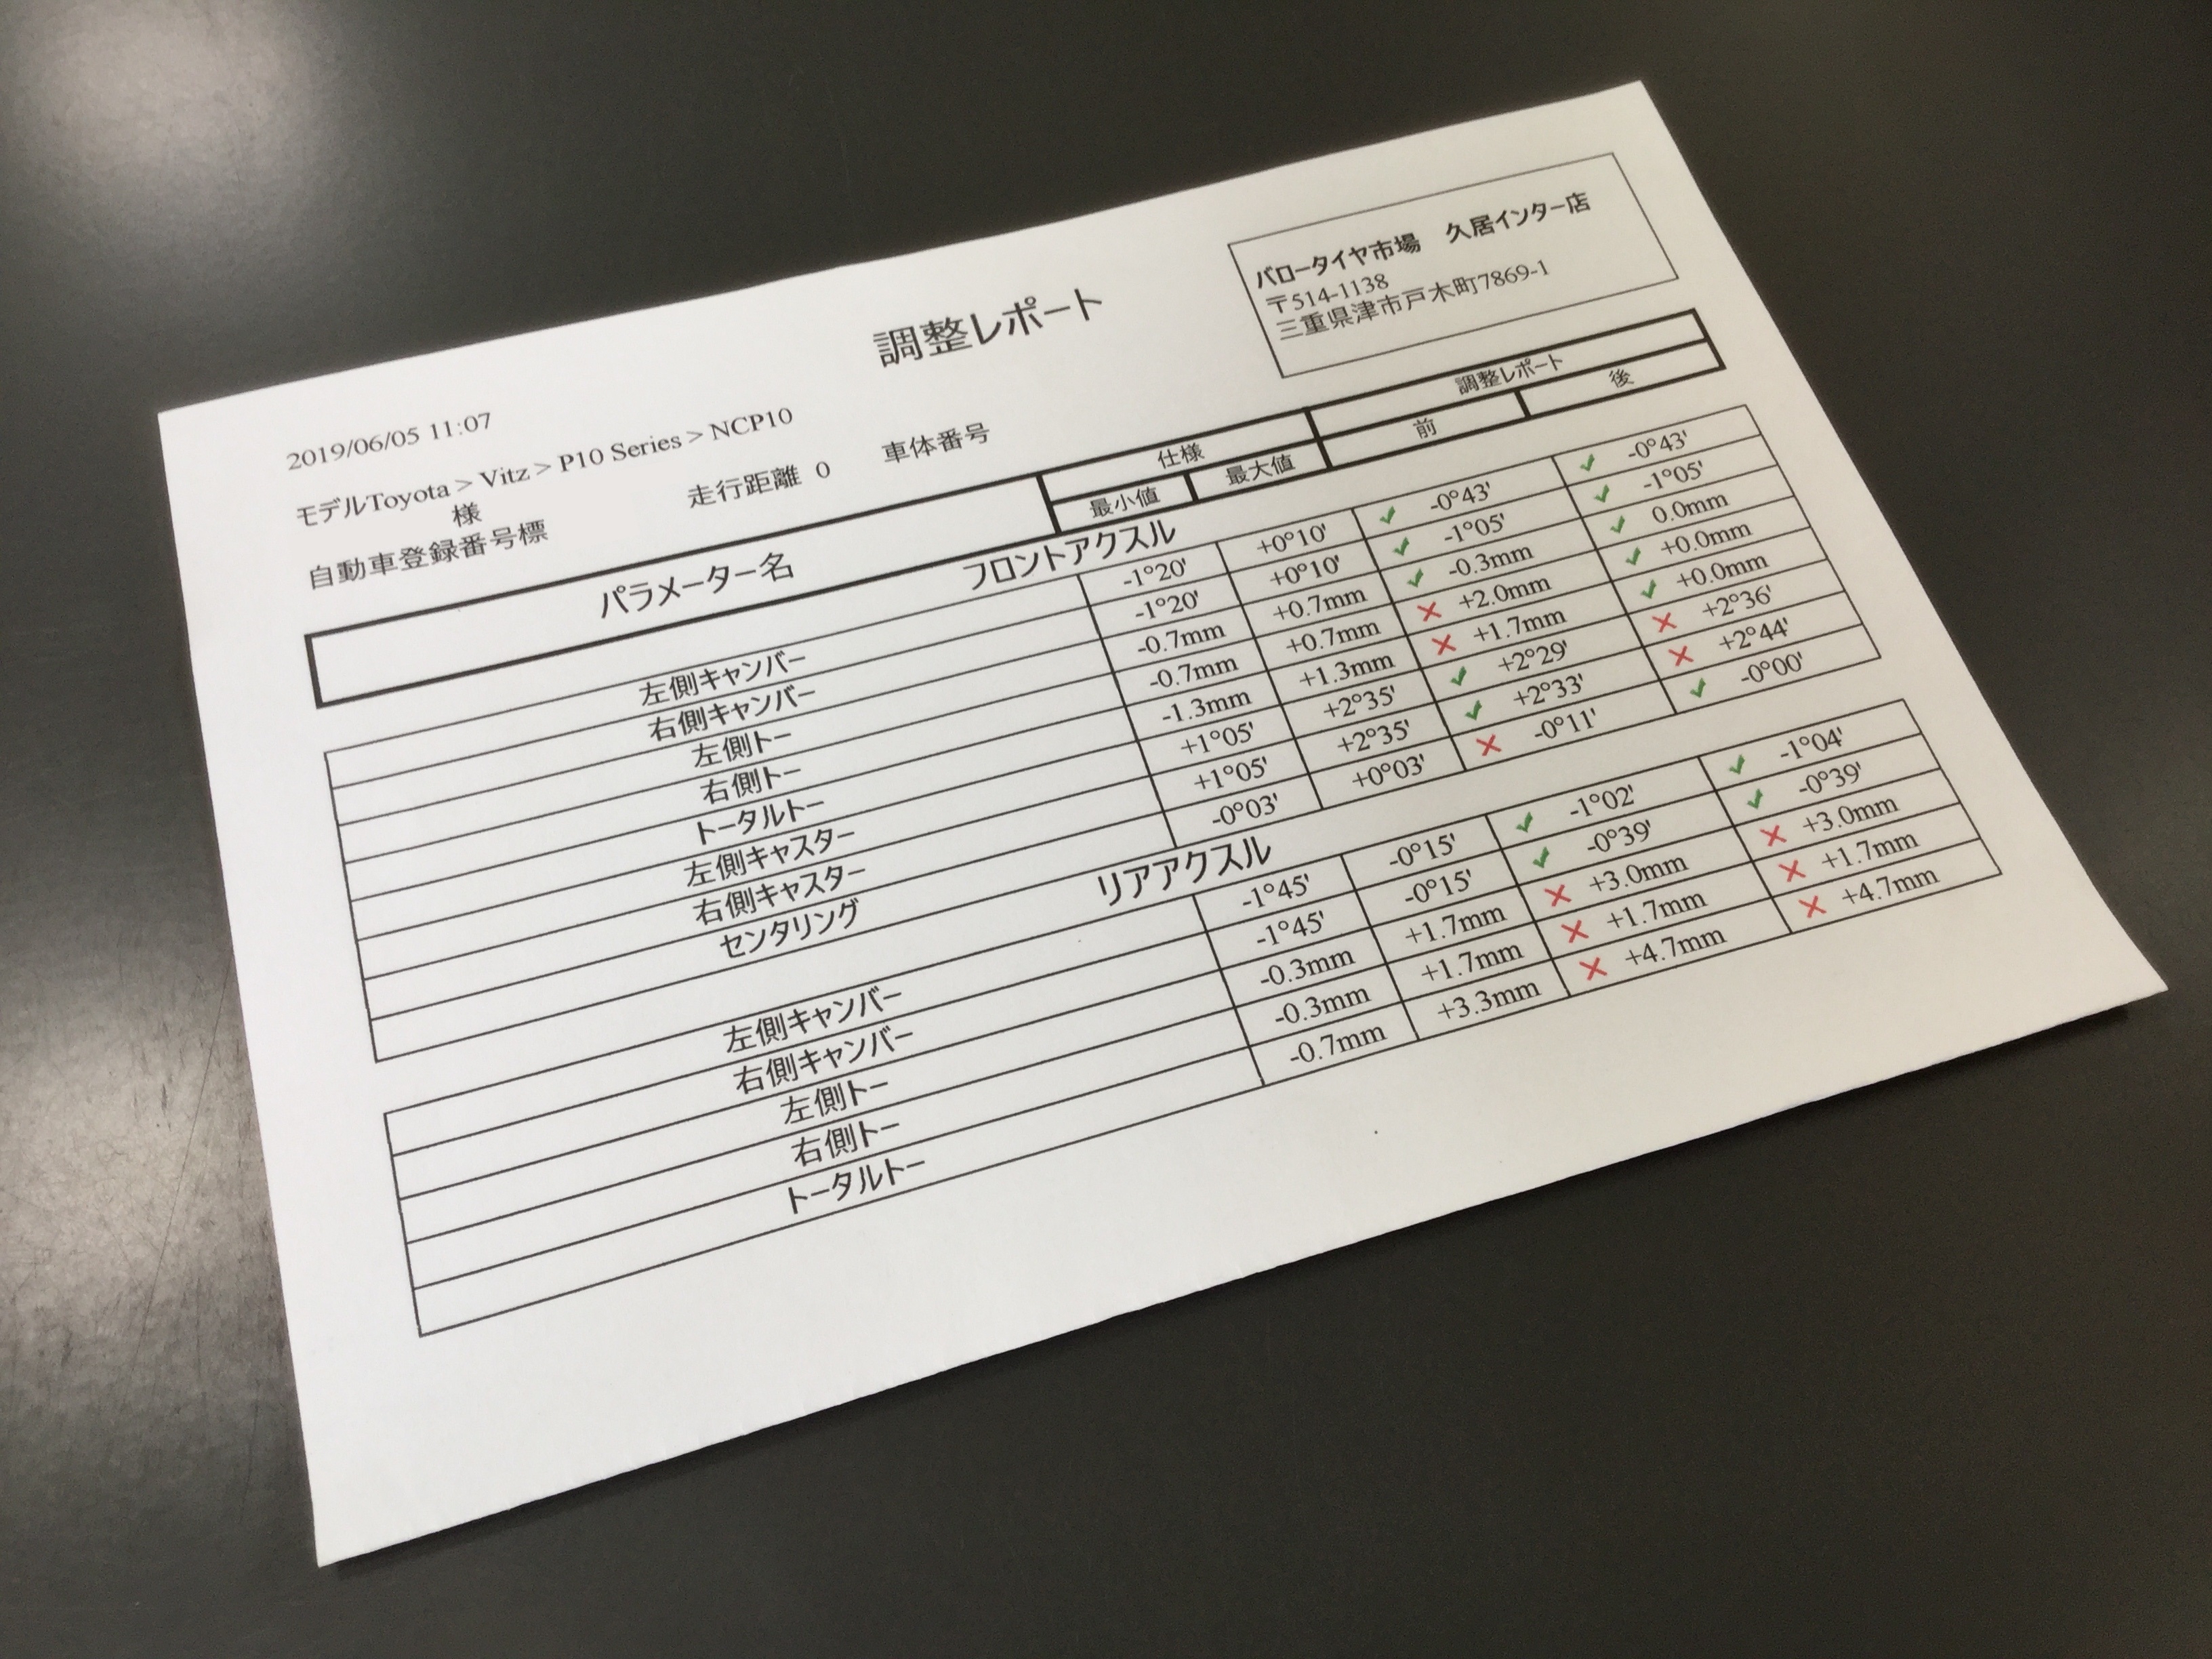 調整レポート
バロータイヤ市場　久居インター店
〒514-1138
三重県津市戸木町7869-1
2019/06/05 11:07
モデルToyota > Vitz > P10 Series > NCP10
様
自動車登録番号標 走行距離 0 車体番号
パラメーター名 仕様 調整レポート
最小値 最大値 前 後
フロントアクスル
左側キャンバー -1°20' +0°10' ✓ -0°43' ✓ -0°43'
右側キャンバー -1°20' +0°10' ✓ -1°05' ✓ -1°05'
左側トー -0.7mm +0.7mm ✓ -0.3mm ✓ 0.0mm
右側トー -0.7mm +0.7mm ✕ +2.0mm ✓ +0.0mm
トータルトー -1.3mm +1.3mm ✕ +1.7mm ✓ +0.0mm
左側キャスター +1°05' +2°35' ✓ +2°29' ✕ +2°36'
右側キャスター +1°05' +2°35' ✓ +2°33' ✕ +2°44'
センタリング -0°03' +0°03' ✕ -0°11' ✓ -0°00'
リアアクスル
左側キャンバー -1°45' -0°15' ✓ -1°02' ✓ -1°04'
右側キャンバー -1°45' -0°15' ✓ -0°39' ✓ -0°39'
左側トー -0.3mm +1.7mm ✕ +3.0mm ✕ +3.0mm
右側トー -0.3mm +1.7mm ✕ +1.7mm ✕ +1.7mm
トータルトー -0.7mm +3.3mm ✕ +4.7mm ✕ +4.7mm